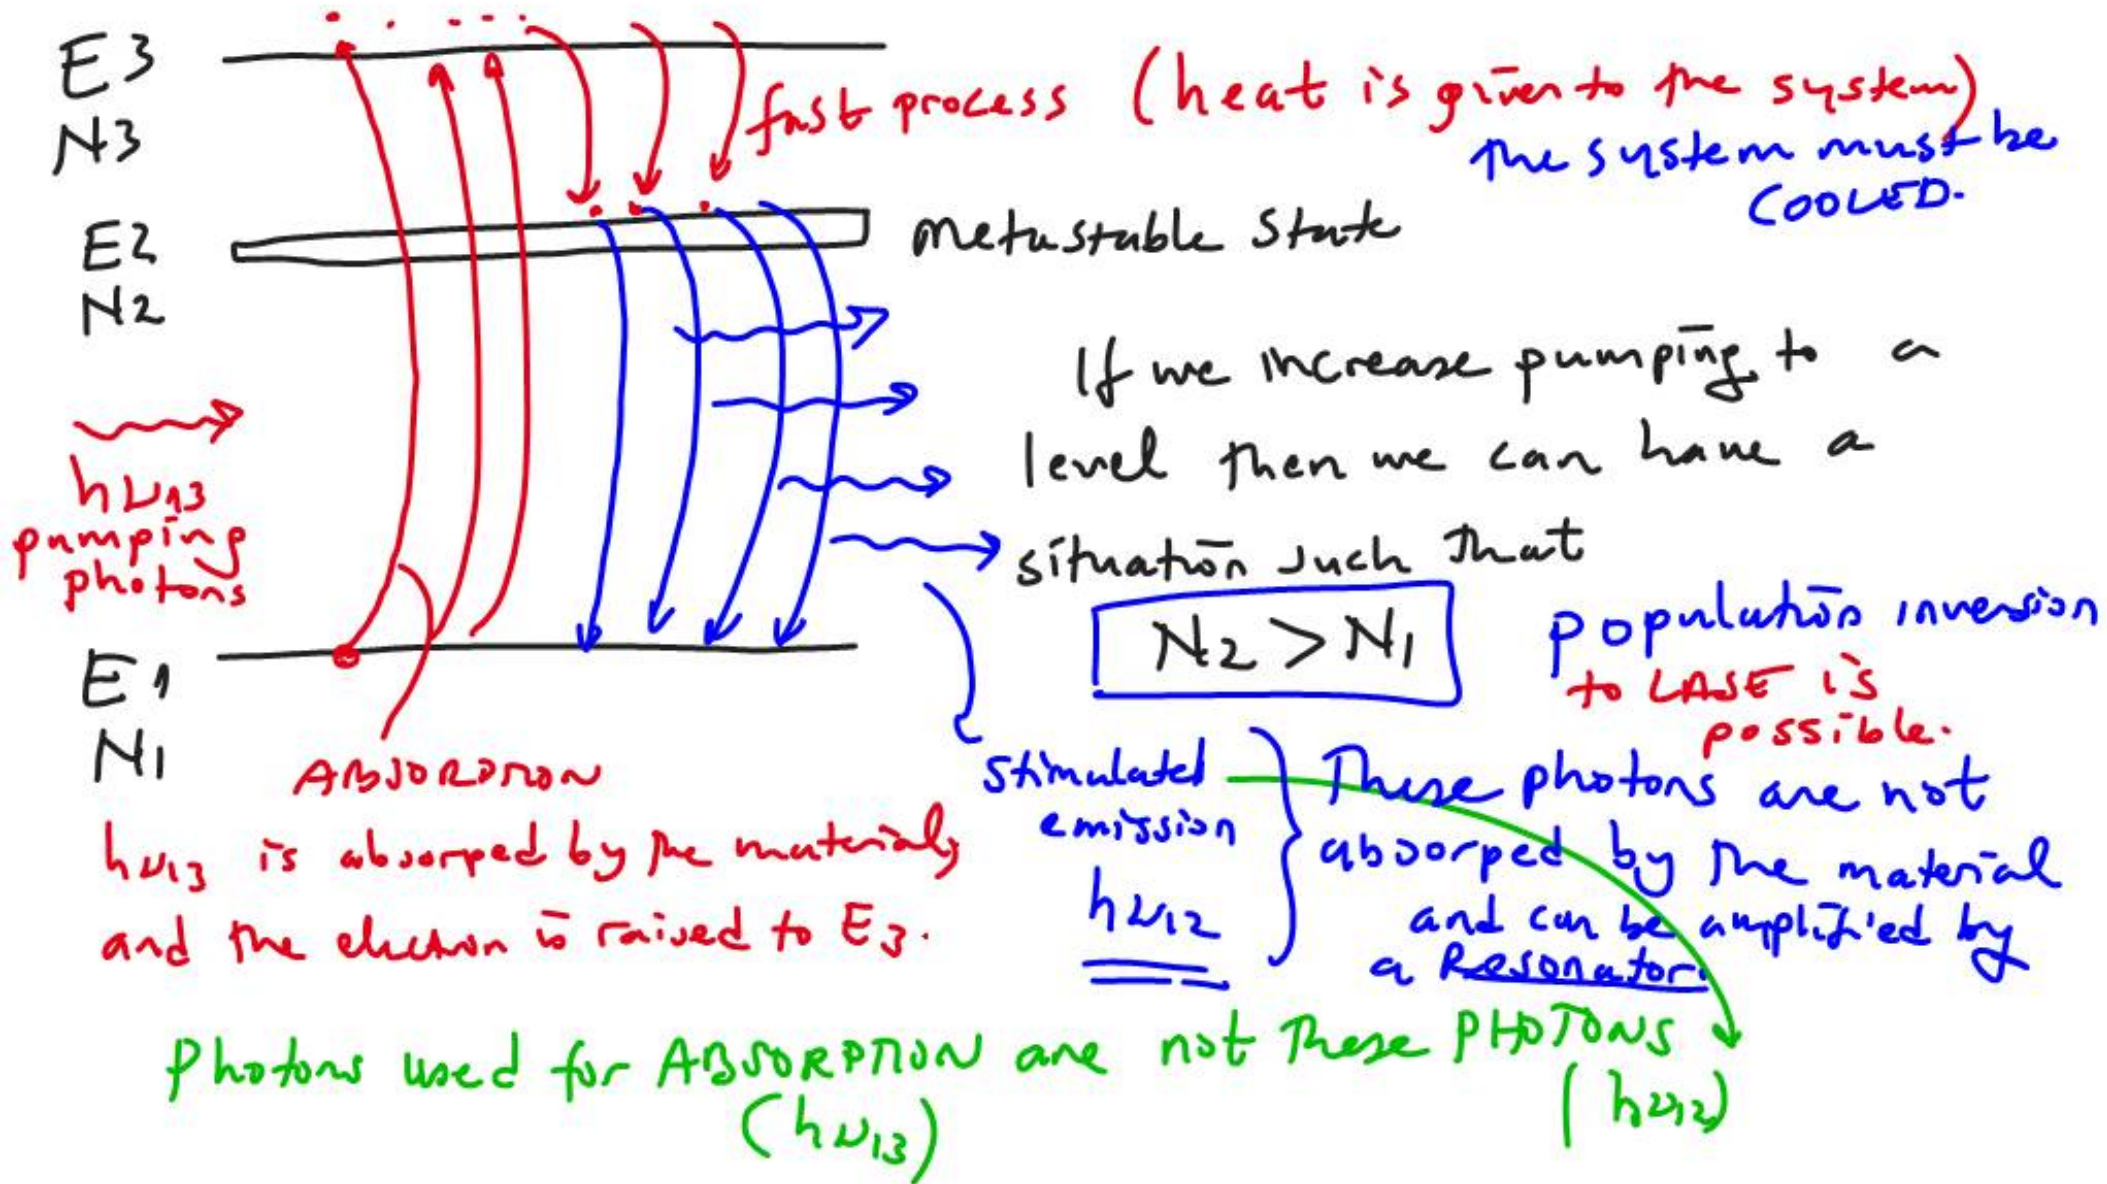 E3
N3
fast process (heat is given to the system)
the system must be
COOLED.
E2
N2
Metastable State
hν13
pumping
photons
If we increase pumping to a
level then we can have a
situation such that
N2 > N1
population inversion
to LASE is
possible.
E1
N1
ABSORPTION
hν13 is absorped by the material,
and the electron is raised to E3.
Stimulated
emission
hν12
These photons are not
absorped by the material
and can be amplified by
a Resonator.
Photons used for ABSORPTION are not these PHOTONS
(hν13)
(hν12)